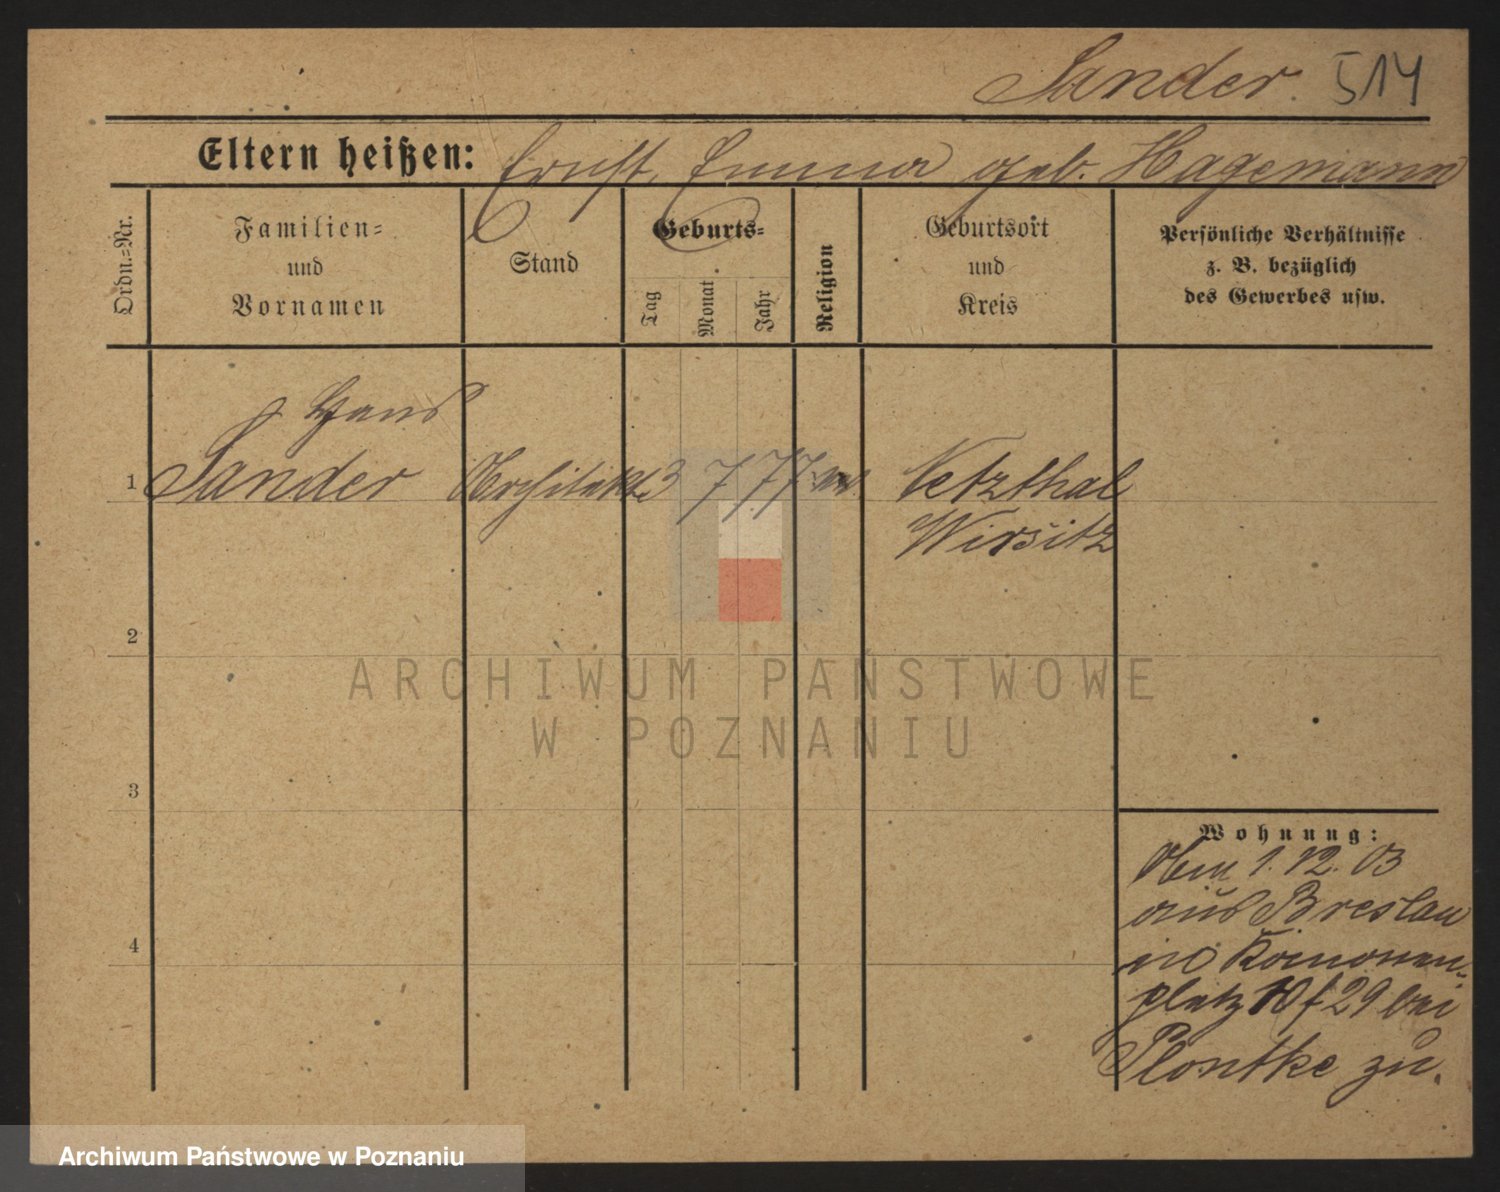 Sander. 514
Eltern heißen: Ernst, Emma geb. Hagemann
Ordn.-Nr.
Familien-
und
Vornamen
Stand
Geburts-
Tag
Monat
Jahr
Religion
Geburtsort
und
Kreis
Persönliche Verhältnisse
z. B. bezüglich
des Gewerbes usw.
Hans
1 Sander Architekt 3 7 77 ev. Netzthal
Wirsitz
2
3
4
Wohnung:
Am 1.12.03
aus Breslau
in
platz 10 f 29 bei
Plontke zu.
ARCHIWUM PAŃSTWOWE
W POZNANIU
Archiwum Państwowe w Poznaniu